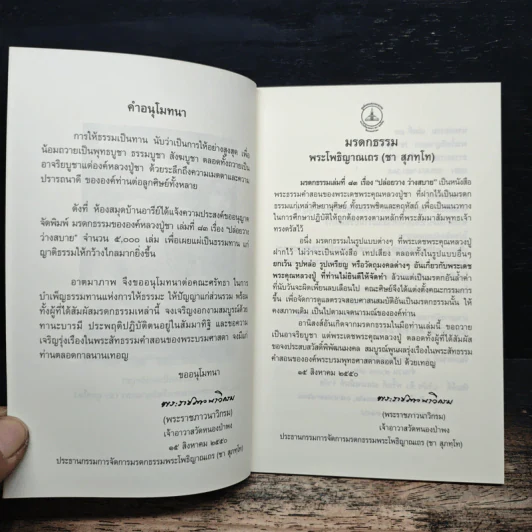 คำอนุโมทนา
การให้ธรรมเป็นทาน นับว่าเป็นการให้อย่างสูงสุด เพื่อ
น้อมถวายเป็นพุทธบูชา ธรรมบูชา สังฆบูชา ตลอดทั้งถวายเป็น
อาจริยบูชาแด่องค์หลวงปู่ชา ด้วยระลึกถึงความเมตตาและความ
ปรารถนาดี ขององค์ท่านต่อลูกศิษย์ทั้งหลาย
ดังที่ ห้องสมุดบ้านอารีย์ได้แจ้งความประสงค์ขออนุญาต
จัดพิมพ์ มรดกธรรมขององค์หลวงปู่ชา เล่มที่ ๔๓ เรื่อง "ปล่อยวาง
ว่างสบาย" จำนวน ๕,๐๐๐ เล่ม เพื่อเผยแผ่เป็นธรรมทาน แก่
ญาติธรรมให้กว้างไกลมากยิ่งขึ้น
อาตมาภาพ จึงขออนุโมทนาต่อคณะศรัทธา ในการ
บำเพ็ญธรรมทานแห่งการให้ธรรมะ ให้ปัญญาแก่ส่วนรวม พร้อม
ทั้งผู้ที่ได้สัมผัสมรดกธรรมเหล่านี้ จงเจริญงอกงามสมบูรณ์ด้วย
ทานะบารมี ประพฤติปฏิบัติตนอยู่ในสัมมาทิฐิ และขอความ
เจริญรุ่งเรืองในพระสัทธรรมคำสอนของพระบรมศาสดา จงมีแก่
ท่านตลอดกาลนานเทอญ
ขออนุโมทนา
พระราชภาวนาวิกรม
(พระราชภาวนาวิกรม)
เจ้าอาวาสวัดหนองป่าพง
๑๕ สิงหาคม ๒๕๕๐
ประธานกรรมการจัดการมรดกธรรมพระโพธิญาณเถร (ชา สุภทฺโท)
มรดกธรรม
พระโพธิญาณเถร (ชา สุภทฺโท)
มรดกธรรมเล่มที่ ๔๓ เรื่อง "ปล่อยวาง ว่างสบาย" เป็นหนังสือ
พระธรรมคำสอนของพระเดชพระคุณหลวงปู่ชา ที่ฝากไว้เป็นมรดก
ธรรมแก่เหล่าศิษยานุศิษย์ ทั้งบรรพชิตและคฤหัสถ์ เพื่อเป็นแนวทาง
ในการศึกษาปฏิบัติให้ถูกต้องตรงตามหลักที่พระสัมมาสัมพุทธเจ้า
ทรงตรัสไว้
อนึ่ง มรดกธรรมในรูปแบบต่างๆ ที่พระเดชพระคุณหลวงปู่
ฝากไว้ ไม่ว่าจะเป็นหนังสือ เทปเสียง ตลอดทั้งในรูปแบบอื่นๆ
ยกเว้น รูปหล่อ รูปเหรียญ หรือวัตถุมงคลต่างๆ อันเกี่ยวกับพระเดช
พระคุณหลวงปู่ ที่ท่านไม่ยินดีให้จัดทำ ล้วนแต่เป็นมรดกอันล้ำค่า
ที่นับวันจะผิดเพี้ยนลบเลือนไป คณะศิษย์จึงได้แต่งตั้งคณะกรรมการ
ขึ้น เพื่อจัดการดูแลตรวจสอบศาสนสมบัติอันเป็นมรดกธรรมนั้น ให้
คงสภาพเดิม เป็นไปตามเจตนารมณ์ขององค์ท่าน
อานิสงส์อันเกิดจากมรดกธรรมในมือท่านเล่มนี้ ขอถวาย
เป็นอาจริยบูชา แด่พระเดชพระคุณหลวงปู่ ตลอดทั้งผู้ที่ได้สัมผัส
ขอจงประสบสวัสดิ์พิพัฒนมงคล สมบูรณ์พูนผลรุ่งเรืองในพระสัทธรรม
คำสอนขององค์พระบรมพุทธศาสดาตลอดไป ด้วยเทอญ
๑๕ สิงหาคม ๒๕๕๐
พระราชภาวนาวิกรม
(พระราชภาวนาวิกรม)
เจ้าอาวาสวัดหนองป่าพง
ประธานกรรมการจัดการมรดกธรรมพระโพธิญาณเถร (ชา สุภทฺโท)